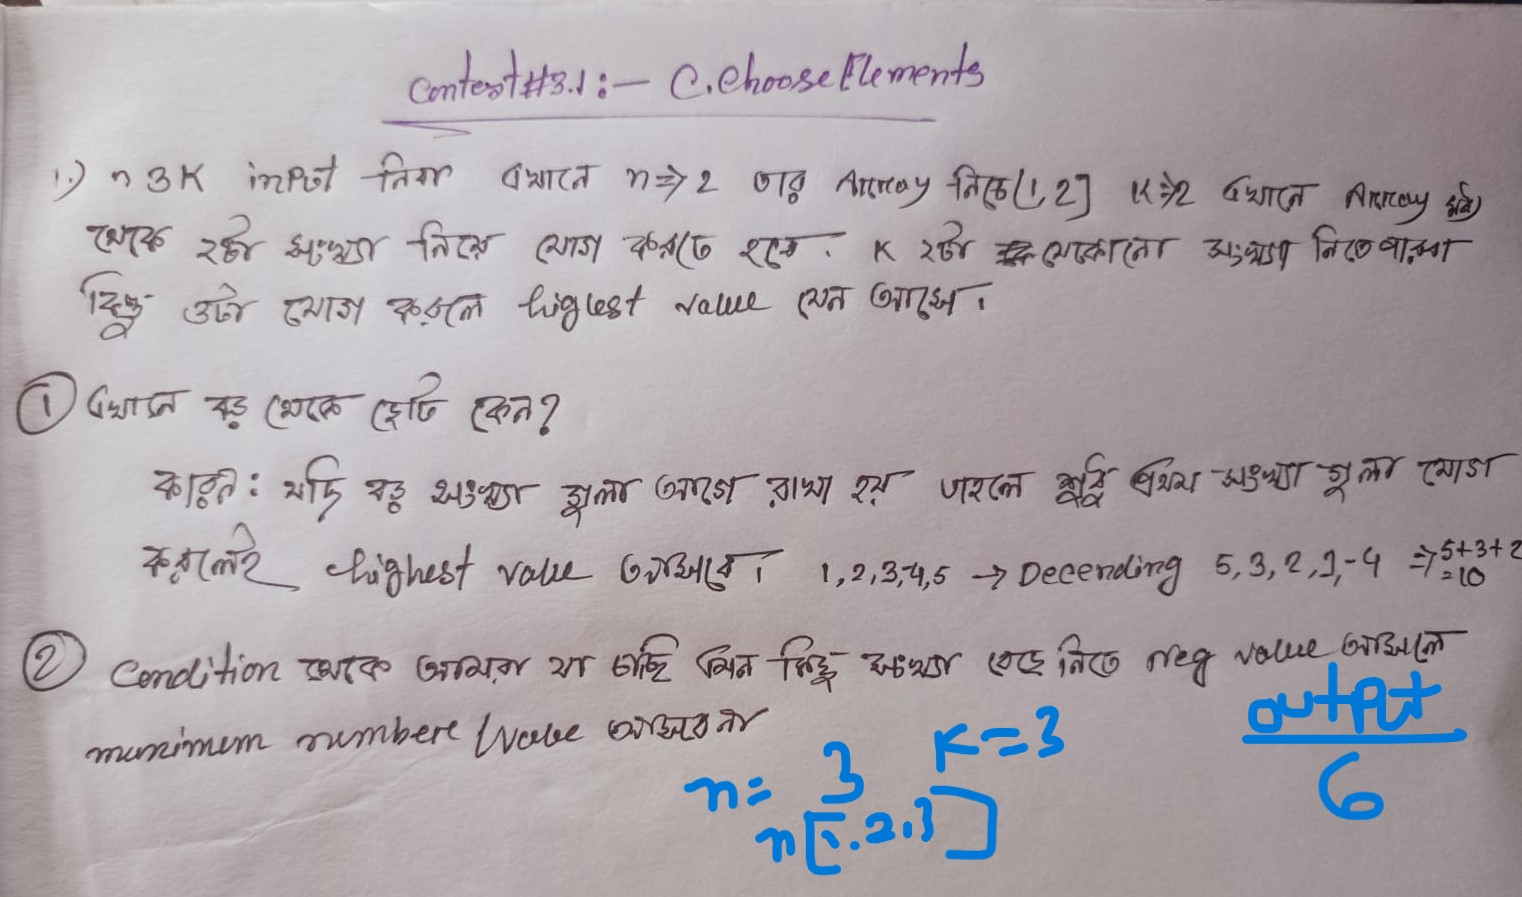 Contest#3.1:— C.Choose Elements
1.) n ও K input নিব এখানে n⇒2 তার Array নিছে[1,2] K⇒2 এখানে Array
থেকে ২টা সংখ্যা নিয়ে যোগ করতে হবে. K ২টা যেকোনো সংখ্যা নিতে পারবো
কিন্তু ওটা যোগ করলে higlest value যেন আসে।
① এখানে বড় থেকে ছোট কেন?
কারন: যদি বড় সংখ্যা গুলা আগে রাখা হয় তাহলে শুধু প্রথম সংখ্যা গুলা যোগ
করলেই highest value আসবে। 1,2,3,-4,5 → Decending 5,3,2,1,-4 ⇒ 5+3+2
=10
② Condition থেকে আমরা যা চাচ্ছি কিছু সংখ্যা নিতে Neg value আসলে
munimum numbere/Value আসবেনা
output
n= 3 K=3
6
n[1.2.3]